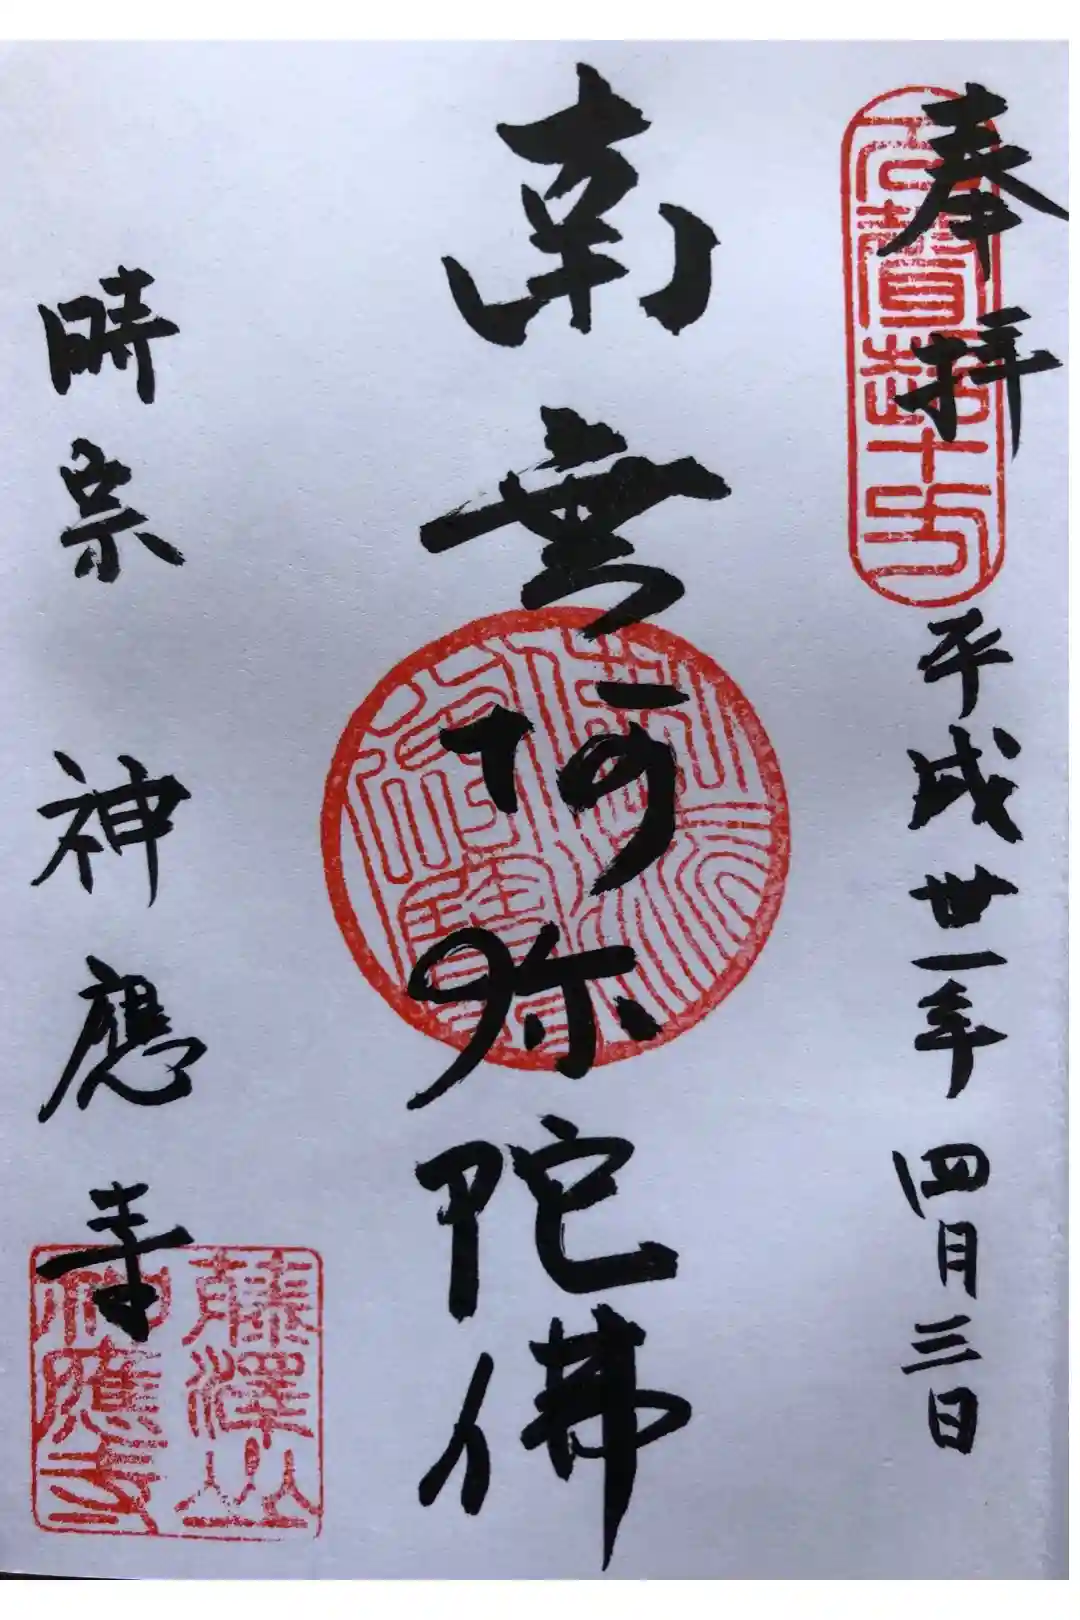 奉拝
平成丗一年
四月三日
南無阿弥陀佛
時宗
神應寺
藤澤山
神應寺